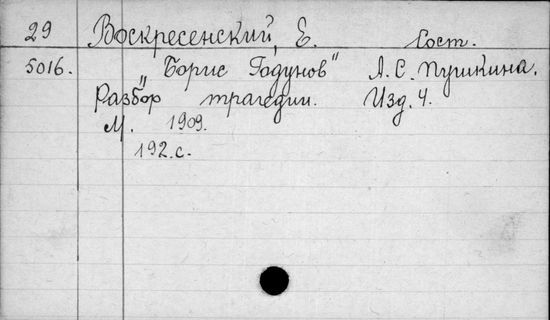 29 Воскресенский, Е. Сост.
5016. „Борис Годунов" А.С. Пушкина.
Разбор трагедии. Изд. 4.
М. 1909.
192.с.